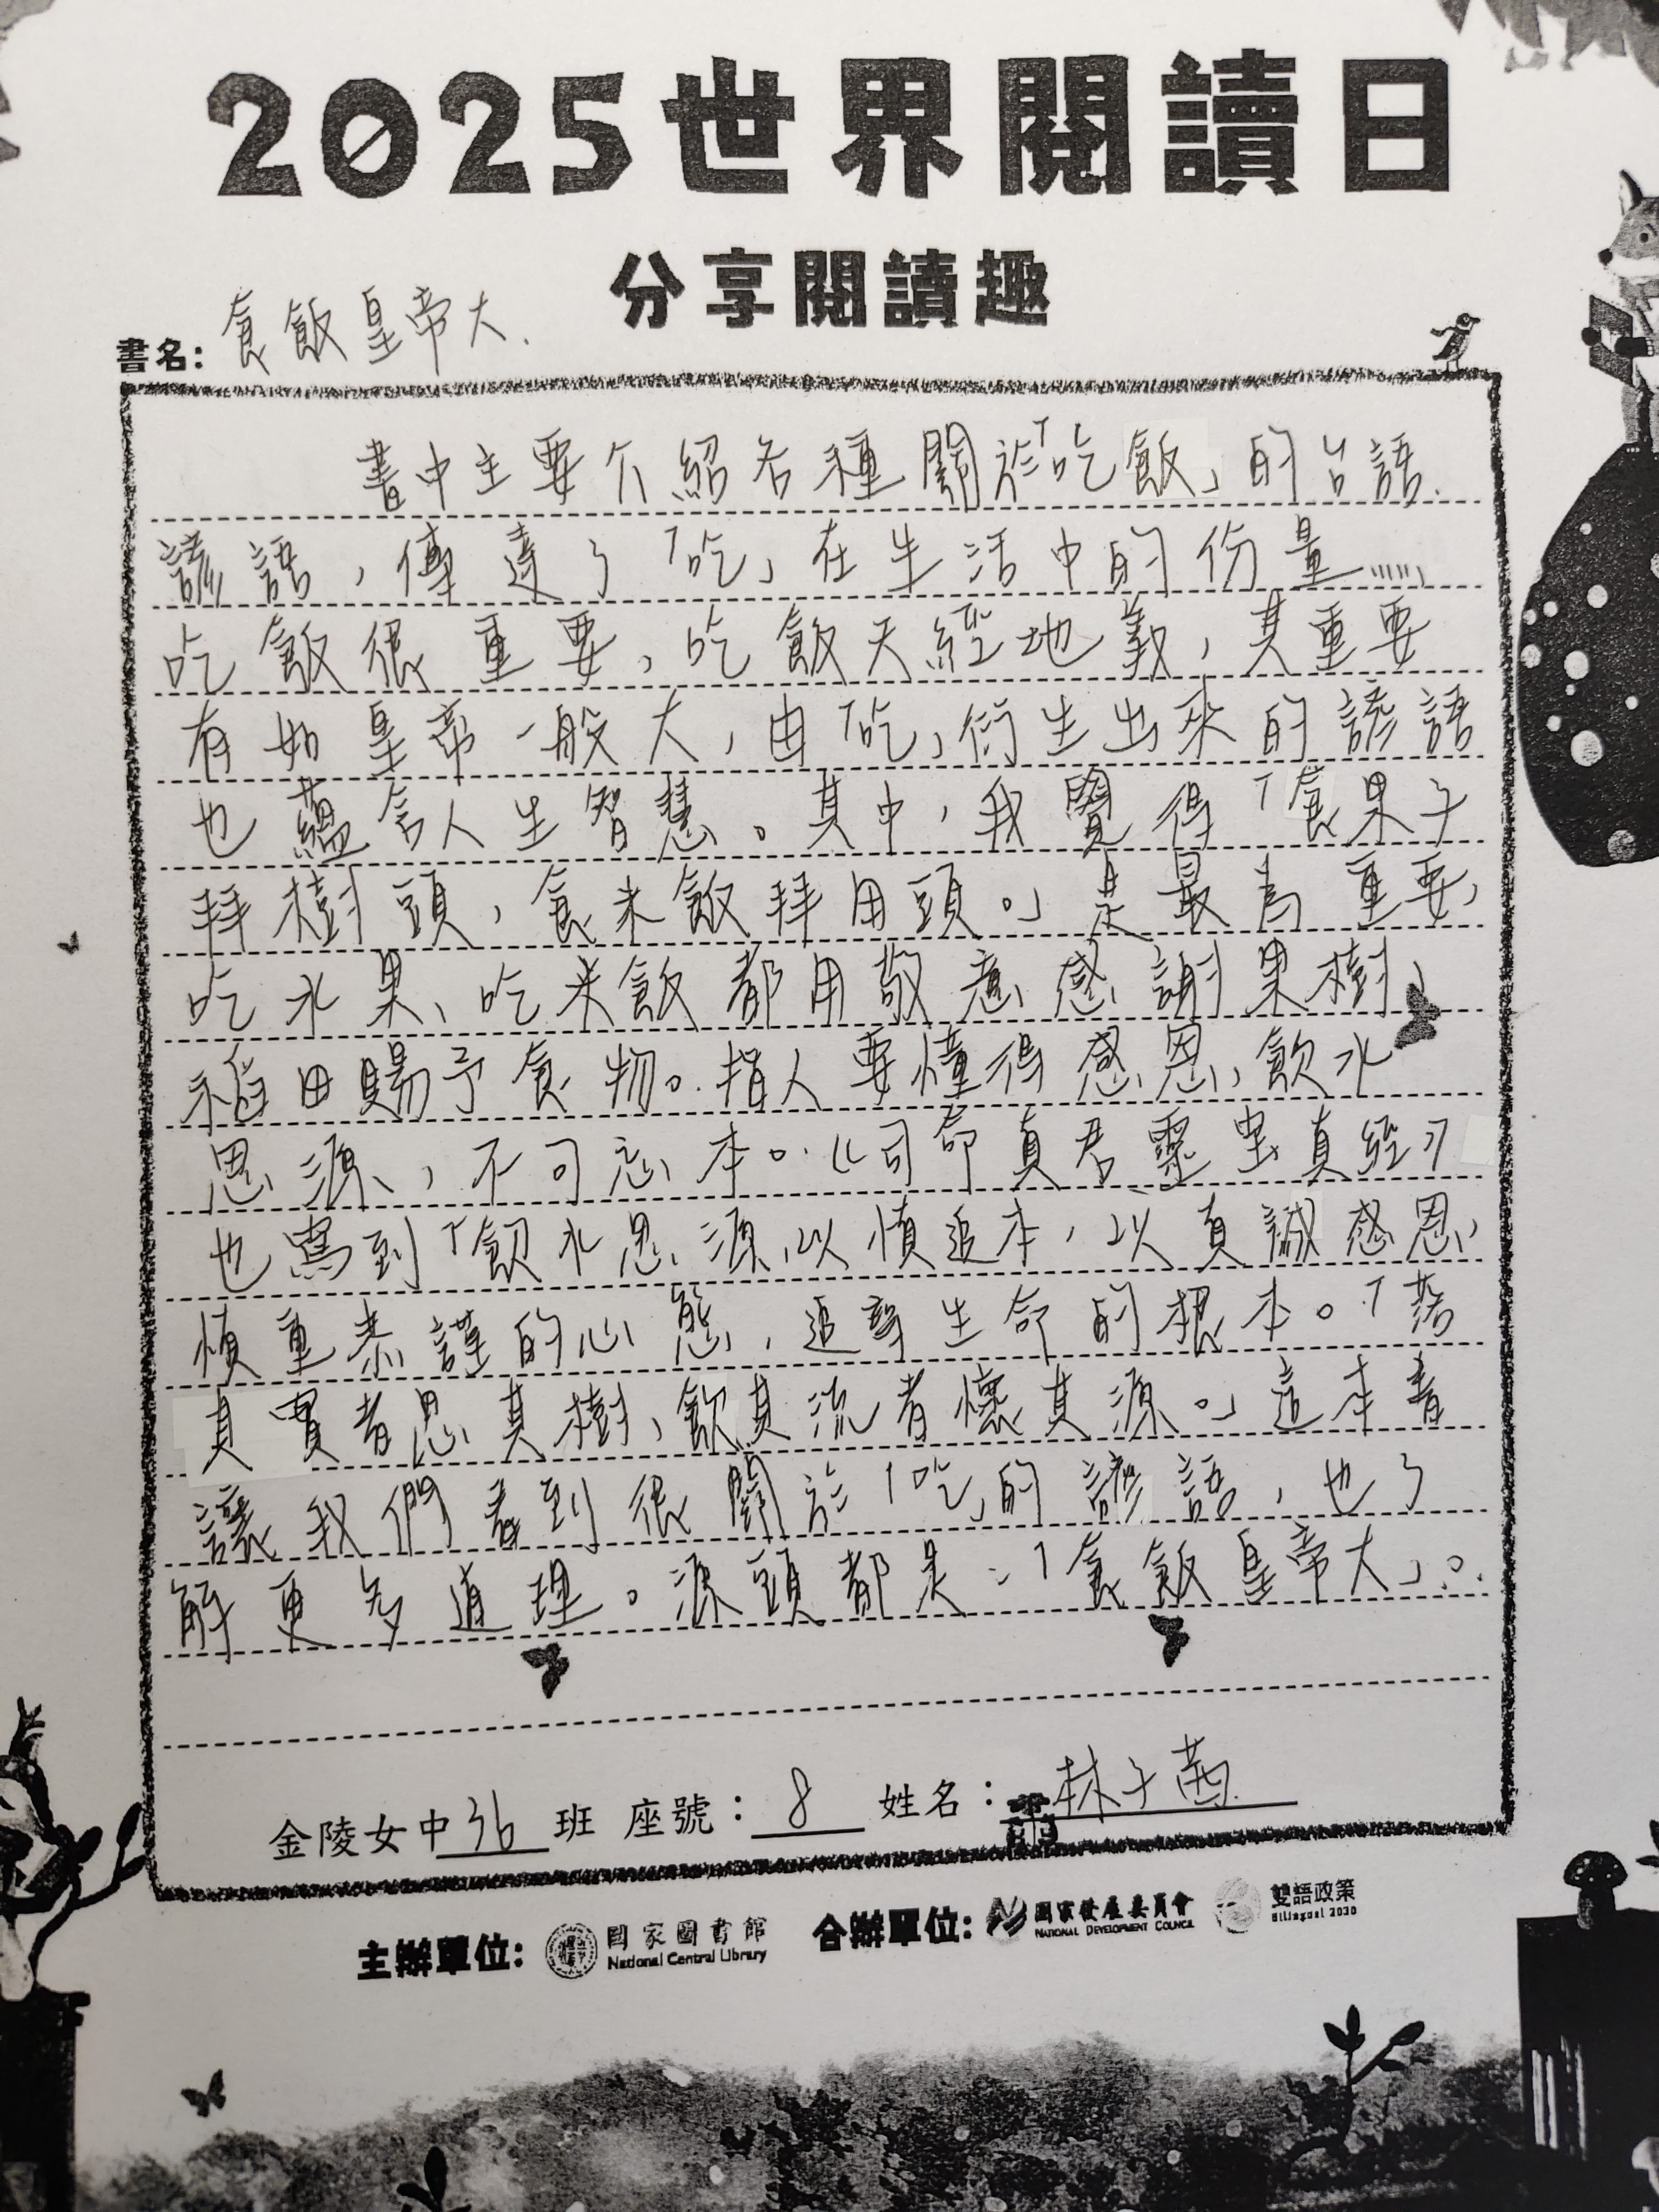 2025世界閱讀日
分享閱讀趣
書名：食飯皇帝大.
書中主要介紹各種關於「吃飯」的台語
諺語，傳達了「吃」在生活中的份量……
吃飯很重要，吃飯天經地義，其重要
有如皇帝一般大，由「吃」衍生出來的諺語
也蘊含人生智慧。其中，我覺得「食果子
拜樹頭，食米飯拜田頭。」是最為重要，
吃水果、吃米飯都用敬意感謝果樹、
稻田賜予食物。指人要懂得感恩、飲水
思源，不可忘本。《司命真君靈虫真經》
也寫到「飲水思源，以慎追本，以真誠感恩，
慎重恭謹的心態，追尋生命的根本。「落
其實者思其樹，飲其流者懷其源。」這本書
讓我們看到很關於「吃」的諺語，也了
解更多道理。源頭都是：「食飯皇帝大」。
金陵女中36班 座號：8 姓名：林子茜
主辦單位：國家圖書館 National Central Library 合辦單位：國家發展委員會 NATIONAL DEVELOPMENT COUNCIL 雙語政策 Bilingual 2030